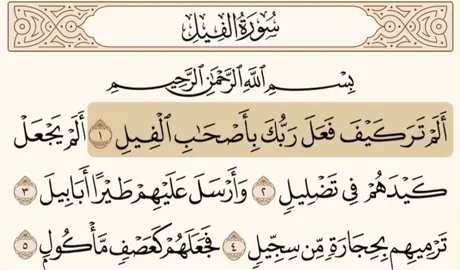 سُورَةُ الفِيلِ
بِسْمِ اللَّهِ الرَّحْمَٰنِ الرَّحِيمِ
أَلَمْ تَرَ كَيْفَ فَعَلَ رَبُّكَ بِأَصْحَابِ الْفِيلِ ١ أَلَمْ يَجْعَلْ
كَيْدَهُمْ فِي تَضْلِيلٍ ٢ وَأَرْسَلَ عَلَيْهِمْ طَيْرًا أَبَابِيلَ ٣
تَرْمِيهِم بِحِجَارَةٍ مِّن سِجِّيلٍ ٤ فَجَعَلَهُمْ كَعَصْفٍ مَّأْكُولٍ ٥